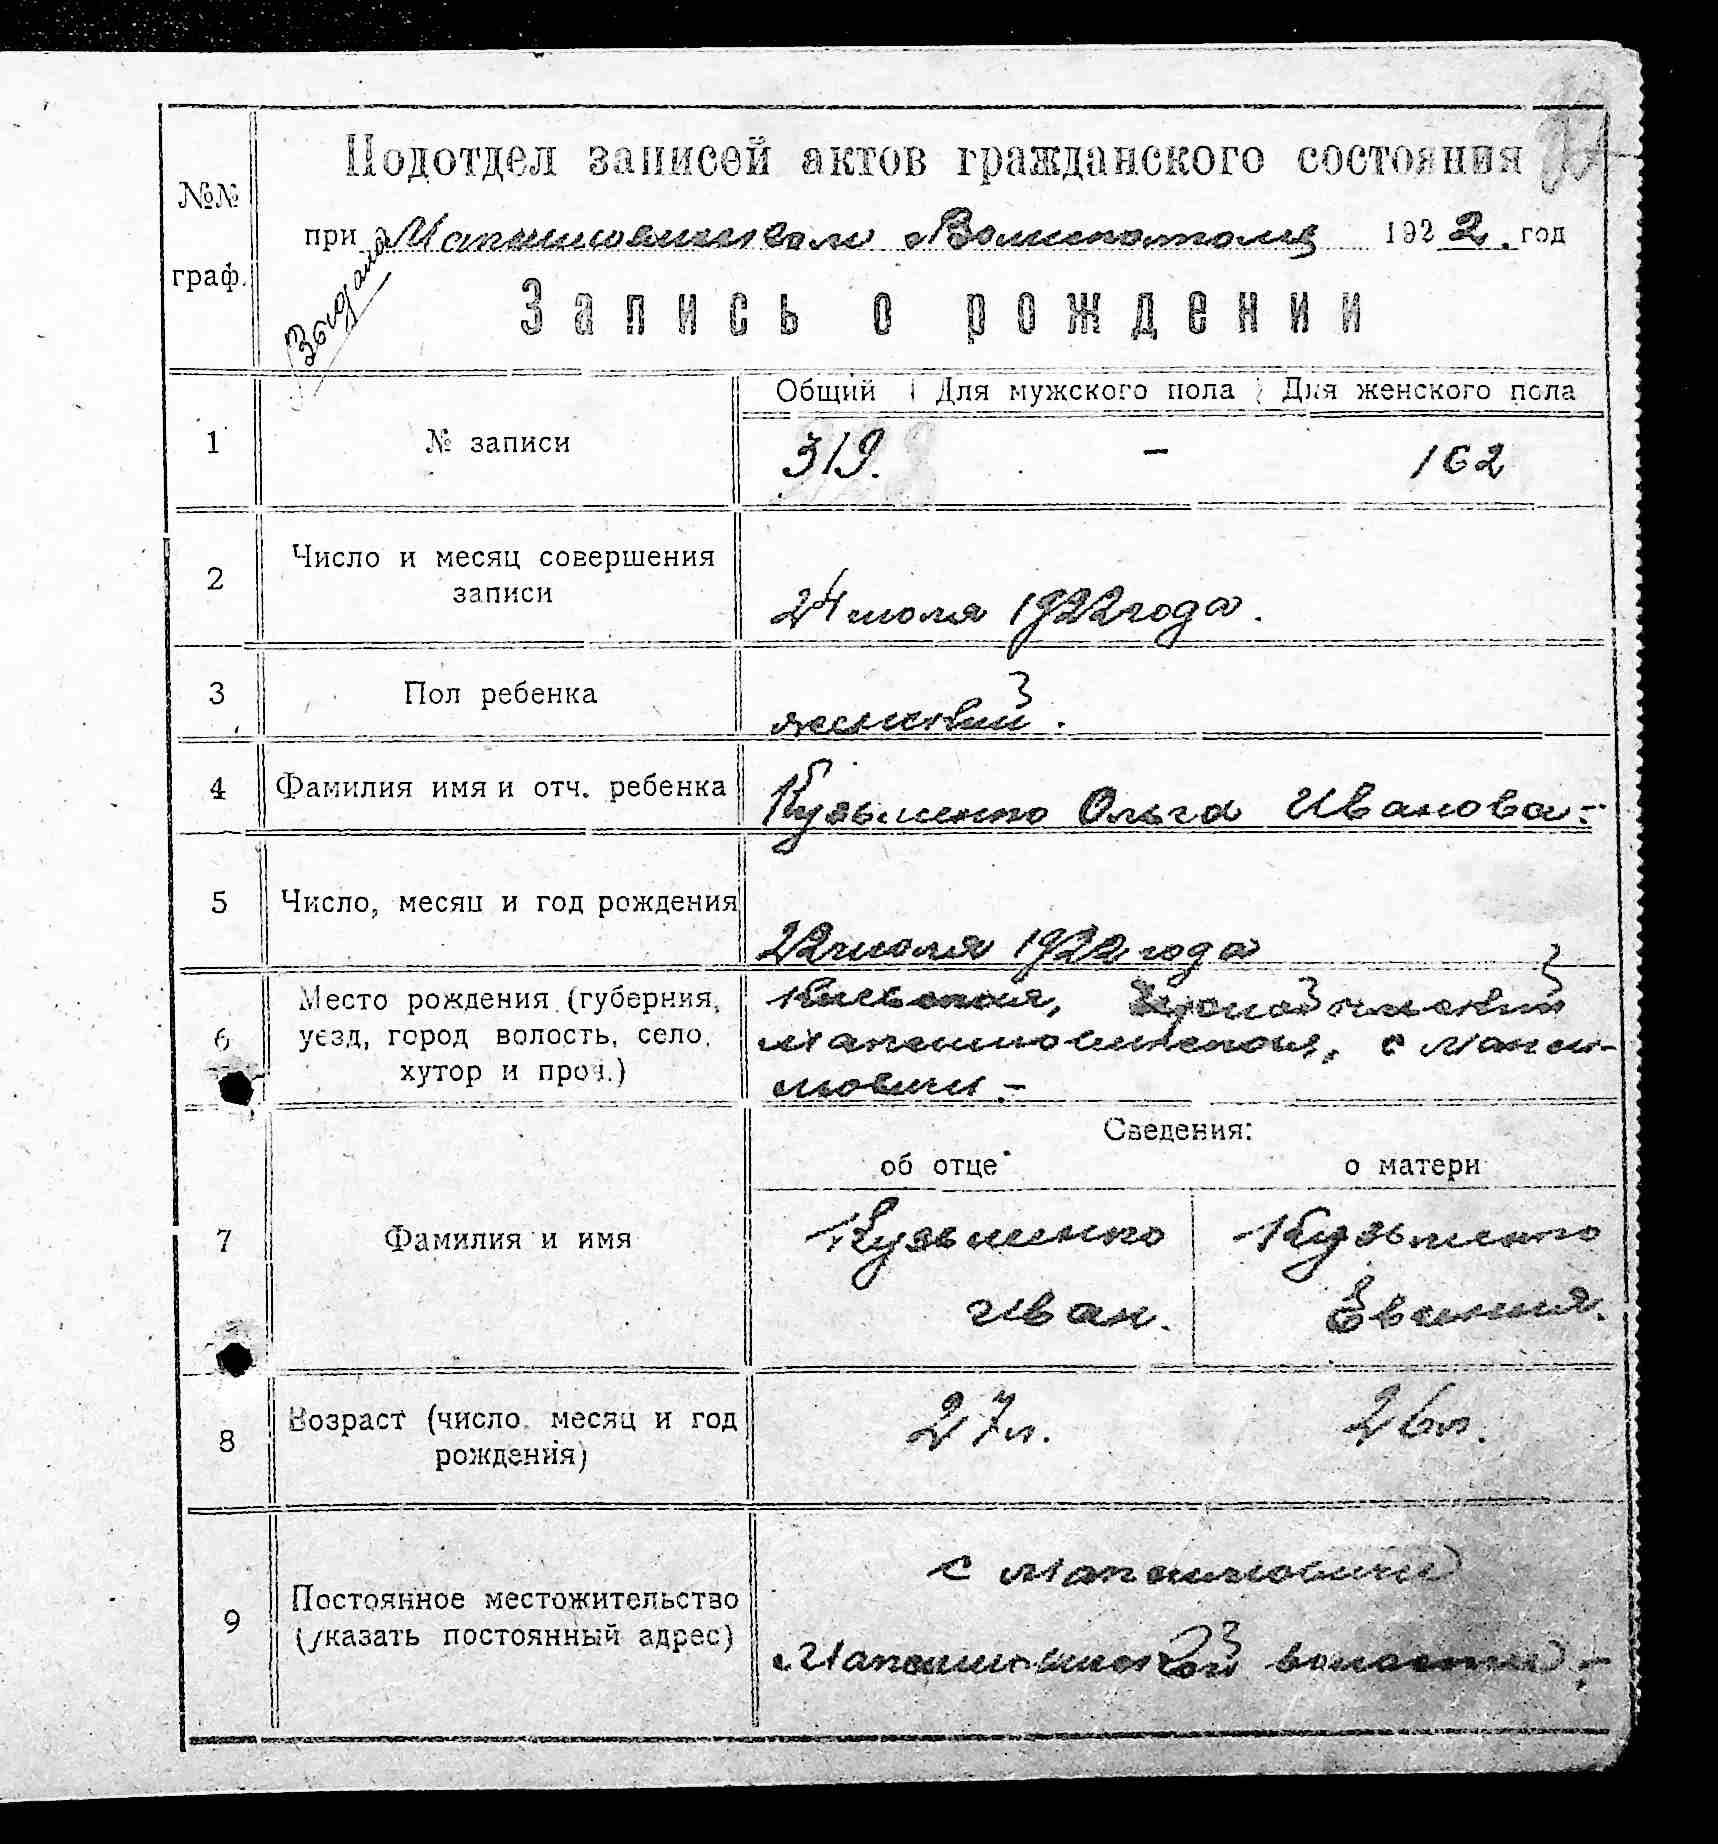 Подотдел записей актов гражданского состояния
№№ граф.
при Волисполкоме 1922. год
Выдана
Запись о рождении
Общий Для мужского пола Для женского пола
1 № записи 319. - 162
2 Число и месяц совершения записи 24 июля 1922 года.
3 Пол ребенка женский.
4 Фамилия имя и отч. ребенка Кузьменко Ольга Иванова.-
5 Число, месяц и год рождения 22 июля 1922 года
6 Место рождения (губерния, уезд, город волость, село, хутор и проч.) Киевская, с
Сведения:
об отце о матери
7 Фамилия и имя Кузьменко Кузьменко
Иван.
8 Возраст (число, месяц и год рождения) 27 л. 26 л.
9 Постоянное местожительство (указать постоянный адрес) с
волости.-